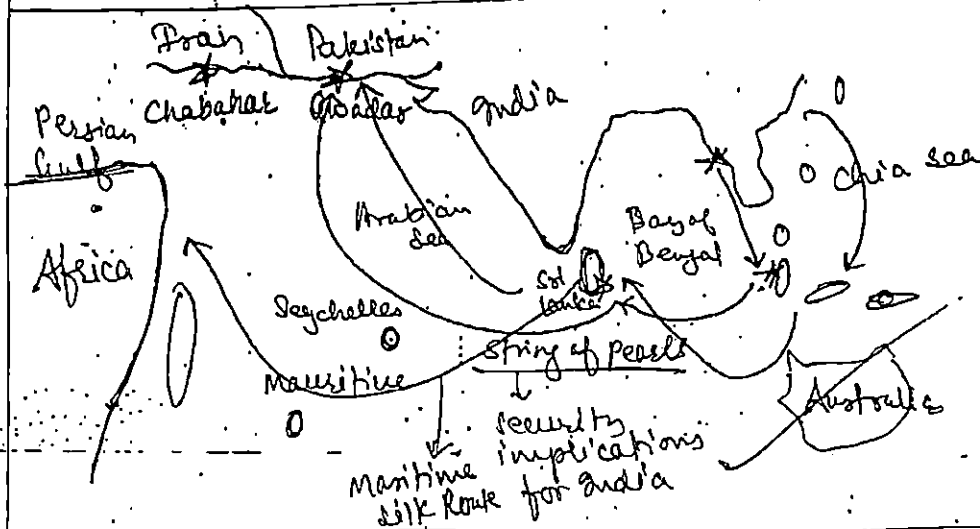 Iran
Pakistan
Chabahar
Gwadar
India
Persian
Gulf
Chia sea
Arabian
Sea
Bay of
Bengal
Africa
Sri
Lanka
Seychelles
String of Pearls
Mauritius
Australia
security
implications
for India
Maritime
Silk Route